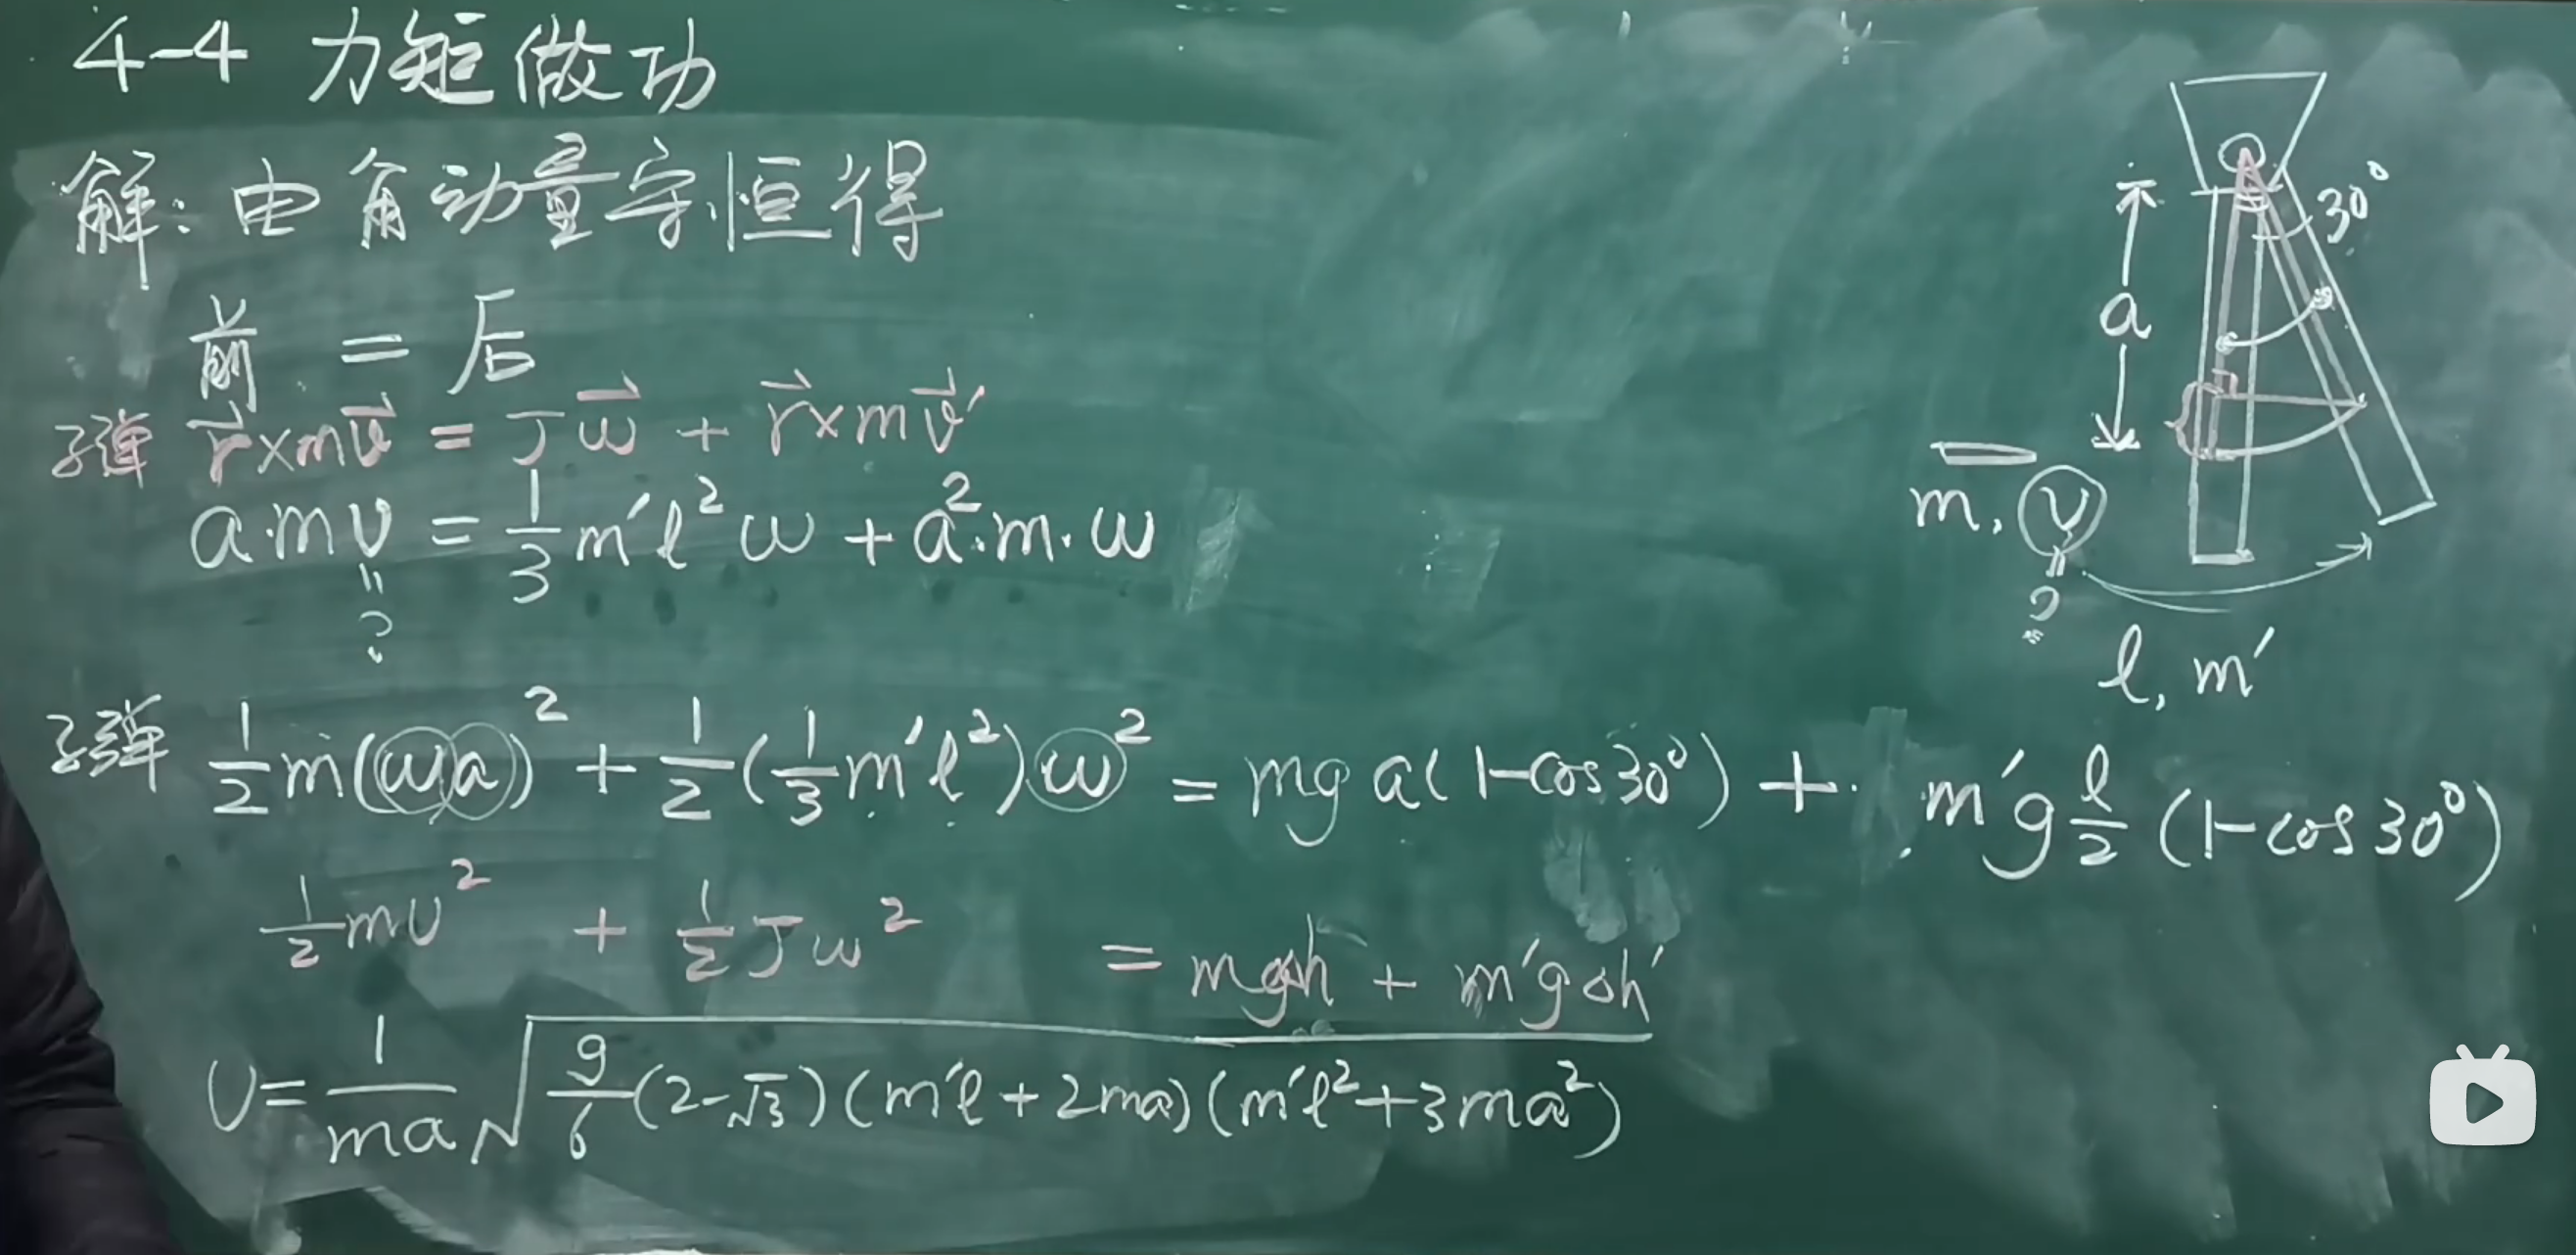 4-4 力矩做功
解:由角动量守恒得
前 = 后
子弹 r⃗×mv⃗ = Jω⃗ + r⃗×mv⃗′
a·mv = 1/3 m′l² ω + a²·m·ω
"
?
子弹 1/2 m(ωa)² + 1/2 (1/3 m′l²) ω² = mg a(1-cos30°) + m′g l/2 (1-cos30°)
1/2 mv² + 1/2 Jω² = mgh + m′gΔh′
v = 1/ma √(g/6 (2-√3)(m′l+2ma)(m′l²+3ma²))
30°
a
m, v
"
?
l, m′